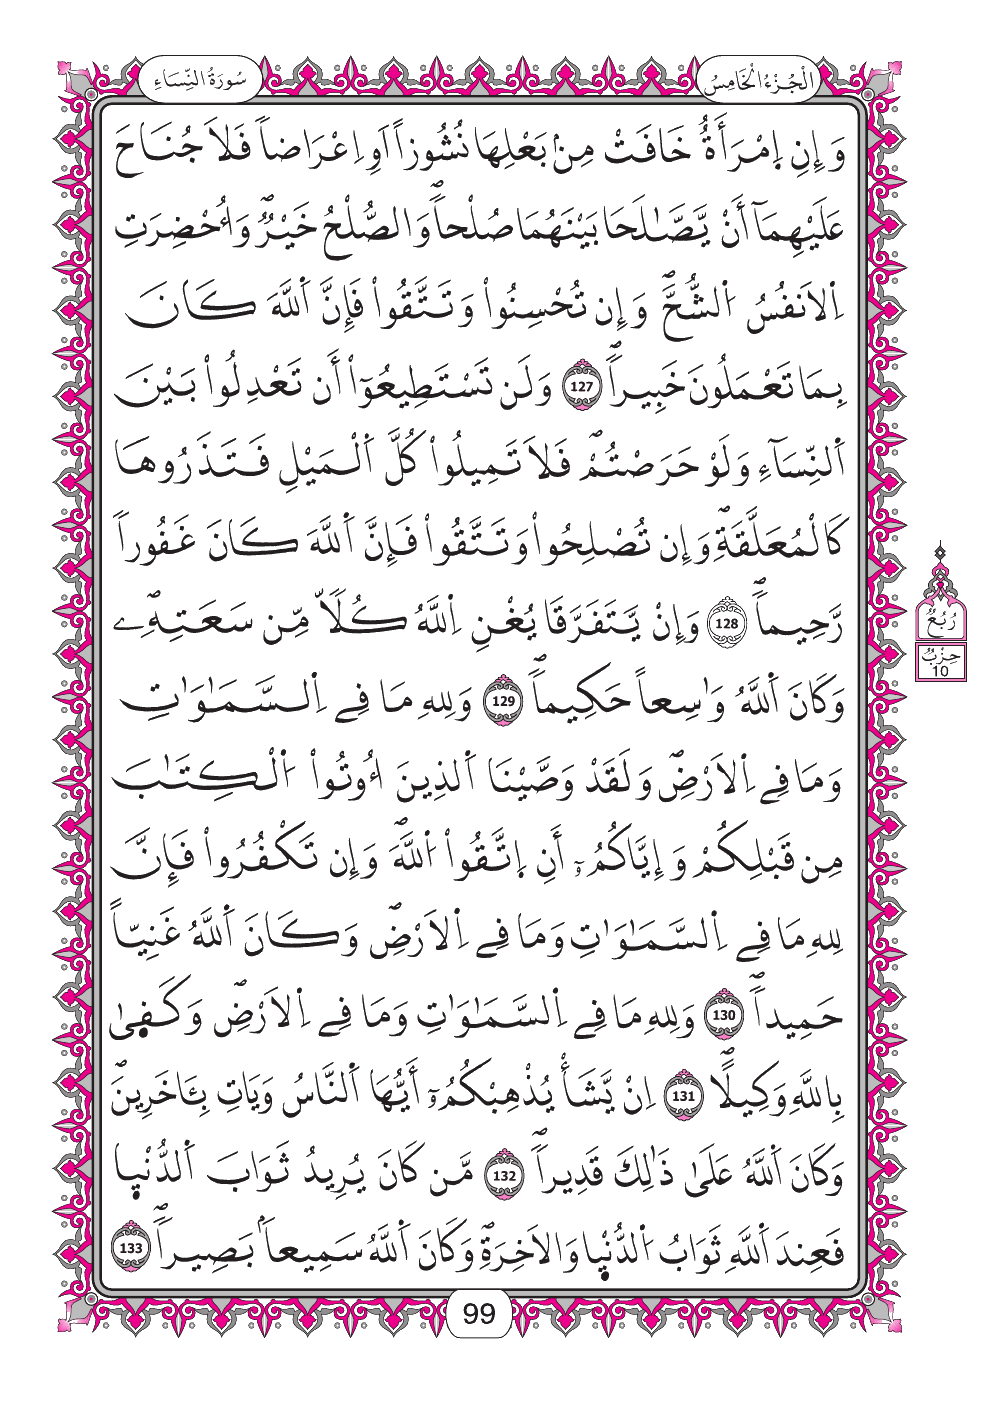 سُورَةُ النِّسَاءِ
الْجُزْءُ الْخَامِسُ
وَإِنِ اِ۪مْرَأَةٌ خَافَتْ مِنۢ بَعْلِهَا نُشُوزاً اَوِ اِعْرَاضاً فَلاَ جُنَاحَ
عَلَيْهِمَآ أَنْ يَّصَّٰلَحَا بَيْنَهُمَا صُلْحاًۖ وَالصُّلْحُ خَيْرٌۖ وَأُحْضِرَتِ
اِ۬لَانفُسُ اُ۬لشُّحَّۖ وَإِن تُحْسِنُواْ وَتَتَّقُواْ فَإِنَّ اَ۬للَّهَ كَانَ
بِمَا تَعْمَلُونَ خَبِيراًۖ 127 وَلَن تَسْتَطِيعُوٓاْ أَن تَعْدِلُواْ بَيْنَ
اَ۬لنِّسَآءِ وَلَوْ حَرَصْتُمْۖ فَلاَ تَمِيلُواْ كُلَّ اَ۬لْمَيْلِ فَتَذَرُوهَا
كَالْمُعَلَّقَةِۖ وَإِن تُصْلِحُواْ وَتَتَّقُواْ فَإِنَّ اَ۬للَّهَ كَانَ غَفُوراً
رَّحِيماًۖ 128 وَإِنْ يَّتَفَرَّقَا يُغْنِ اِ۬للَّهُ كُلّاً مِّن سَعَتِهِۦۖ
وَكَانَ اَ۬للَّهُ وَٰسِعاً حَكِيماًۖ 129 وَلِلهِ مَا فِے اِ۬لسَّمَٰوَٰتِ
وَمَا فِے اِ۬لَارْضِۖ وَلَقَدْ وَصَّيْنَا اَ۬لذِينَ أُوتُواْ اُ۬لْكِتَٰبَ
مِن قَبْلِكُمْ وَإِيَّاكُمُۥٓ أَنِ اِ۪تَّقُواْ اُ۬للَّهَۖ وَإِن تَكْفُرُواْ فَإِنَّ
لِلهِ مَا فِے اِ۬لسَّمَٰوَٰتِ وَمَا فِے اِ۬لَارْضِۖ وَكَانَ اَ۬للَّهُ غَنِيّاً
حَمِيداًۖ 130 وَلِلهِ مَا فِے اِ۬لسَّمَٰوَٰتِ وَمَا فِے اِ۬لَارْضِۖ وَكَفۭيٰ
بِاللَّهِ وَكِيلًاۖ 131 اِنْ يَّشَأْ يُذْهِبْكُمُۥٓ أَيُّهَا اَ۬لنَّاسُ وَيَاتِ بِـَٔاخَرِينَۖ
وَكَانَ اَ۬للَّهُ عَلَىٰ ذَٰلِكَ قَدِيراًۖ 132 مَّن كَانَ يُرِيدُ ثَوَابَ اَ۬لدُّنْيۭا
فَعِندَ اَ۬للَّهِ ثَوَابُ اُ۬لدُّنْيۭا وَالَاخِرَةِۖ وَكَانَ اَ۬للَّهُ سَمِيعاَۢ بَصِيراًۖ 133
رُبُعُ
حِزْبٌ
10
99